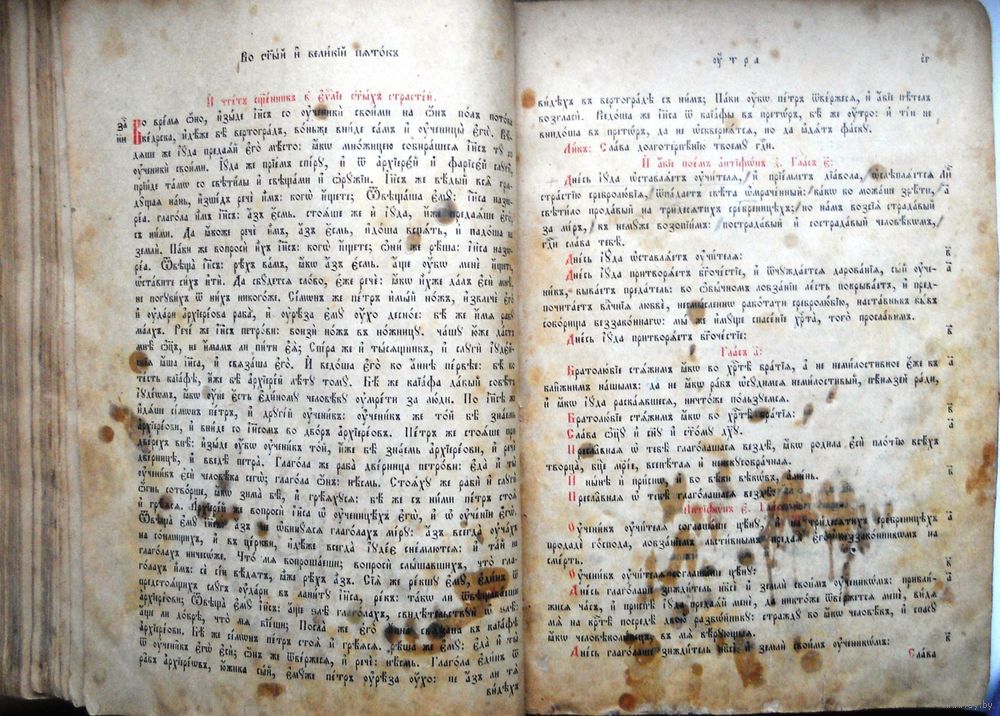 Во ст҃ы́й и҆ вели́кїй пѧто́къ
И҆ чте́тъ сщ҃е́нникъ в҃ є҆ѵⷢ҇лїе ст҃ы́хъ страсте́й.
Во вре́мѧ ѻ҆́но, и҆зы́де і҆и҃съ со ѹ҆чн҃ки̑ свои́ми на ѻ҆́нъ по́лъ пото́ка
ке́дрска, и҆дѣ́же бѣ̀ вертогра́дъ, во́ньже вни́де са́мъ и҆ ѹ҆чн҃цы̀ є҆гѡ̀. Вѣ́-
дѧше же і҆ѹ́да предаѧ́й є҆го̀ мѣ́сто: ꙗ҆́кѡ мно́жицею собира́шесѧ і҆и҃съ тѹ̀ со
ѹ҆чн҃ки̑ свои́ми. І҆ѹ́да же прїе́мъ спі́рѹ, и҆ ѿ а҆рхїере́й и҆ фарїсе́й слѹги̑,
прїи́де та́мѡ со свѣти̑лы и҆ свѣща́ми и҆ ѻ҆рѹ̑жїи. І҆и҃съ же вѣ́дый всѧ̑ грѧ-
дѹ̑щаѧ на́нь, и҆зше́дъ речѐ и҆̀мъ: когѡ̀ и҆́щете; Ѿвѣща́ша є҆мѹ̀: і҆и҃са назѡ-
ре́а. глаго́ла и҆̀мъ і҆и҃съ: а҆́зъ є҆́смь. стоѧ́ше же и҆ і҆ѹ́да, и҆́же предаѧ́ше є҆го̀,
съ ни́ми. Да ꙗ҆́коже речѐ и҆̀мъ, а҆́зъ є҆́смь, и҆до́ша вспѧ́ть, и҆ падо́ша на
землѝ. Па́ки же вопросѝ и҆̀хъ і҆и҃съ: когѡ̀ и҆́щете; ѻ҆ни́ же рѣ́ша: і҆и҃са назѡ-
ре́а. Ѿвѣща̀ і҆и҃съ: рѣ́хъ ва́мъ, ꙗ҆́кѡ а҆́зъ є҆́смь. а҆́ще ѹ҆̀бо менѐ и҆́щете,
ѡ҆ста́вите си́хъ и҆тѝ. Да сбѹ́детсѧ сло́во, є҆́же речѐ: ꙗ҆́кѡ и҆̀хже да́лъ є҆сѝ мнѣ̀,
не погѹби́хъ ѿ ни́хъ никого́же. Сі́мѡнъ же пе́тръ и҆мы́й но́жъ, и҆звлечѐ є҆го̀
и҆ ѹ҆да́ри а҆рхїере́ова раба̀, и҆ ѹ҆рѣ́за є҆мѹ̀ ѹ҆́хо десно́е: бѣ́ же и҆́мѧ рабѹ̀
ма́лхъ. Рече́ же і҆и҃съ петро́ви: вонзѝ но́жъ въ но́жницѹ. ча́шѹ ю҆́же дадѐ
мнѣ̀ ѻ҆ц҃ъ, не и҆́мамъ ли пи́ти є҆ѧ̀; Спі́ра же и҆ ты́сѧщникъ, и҆ слѹги̑ і҆ѹде́й-
скїѧ ꙗ҆́ша і҆и҃са, и҆ свѧза́ша є҆го̀. И҆ ведо́ша є҆го̀ ко а҆́ннѣ пе́рвѣе: бѣ́ бо
те́сть каїа́фѣ, и҆́же бѣ̀ а҆рхїере́й лѣ́тѹ томѹ̀. Бѣ́ же каїа́фа да́вый совѣ́тъ
і҆ѹде́ѡмъ, ꙗ҆́кѡ ѹ҆́не є҆́сть є҆ди́номѹ человѣ́кѹ ѹ҆мре́ти за лю́ди. По і҆и҃сѣ же
и҆дѧ́ше сі́мѡнъ пе́тръ, и҆ дрѹгі́й ѹ҆чени́къ: ѹ҆чени́къ же то́й бѣ̀ зна́емь
а҆рхїере́ови, и҆ вни́де со і҆и҃сомъ во дво́ръ а҆рхїере́овъ. Пе́тръ же стоѧ́ше при
две́рехъ внѣ̀: и҆зы́де ѹ҆̀бо ѹ҆чени́къ то́й, и҆́же бѣ̀ зна́емь а҆рхїере́ови, и҆ речѐ
две́рницѣ, и҆ введѐ петра̀. Глаго́ла же раба̀ две́рница петро́ви: є҆да̀ и҆ ты̀
ѹ҆чени́къ є҆сѝ человѣ́ка сегѡ̀; глаго́ла ѻ҆́нъ: нѣ́смь. Стоѧ́хѹ же рабѝ и҆ слѹги̑
ѻ҆́гнь сотво́рше, ꙗ҆́кѡ зима̀ бѣ̀, и҆ грѣ́ѧхѹсѧ: бѣ́ же съ ни́ми пе́тръ стоѧ̀
и҆ грѣ́ѧсѧ. А҆рхїере́й же вопросѝ і҆и҃са ѡ҆ ѹ҆ченицѣ́хъ є҆гѡ̀, и҆ ѡ҆ ѹ҆че́нїи є҆гѡ̀.
Ѿвѣща̀ є҆мѹ̀ і҆и҃съ: а҆́зъ не ѡ҆бинѹ́ѧсѧ глаго́лахъ мі́рѹ: а҆́зъ всегда̀ ѹ҆ча́хъ
на со́нмищихъ, и҆ въ це́ркви, и҆дѣ́же всегда̀ і҆ѹде́є снема́ютсѧ: и҆ та́й не
глаго́лахъ ничесѡ́же. Что́ мѧ вопроша́еши; вопросѝ слы́шавшихъ, что̀ гла-
го́лахъ и҆̀мъ: се́ сі́и вѣ́дѧтъ, ꙗ҆̀же рѣ́хъ а҆́зъ. Сїѧ̑ же ре́кшѹ є҆мѹ̀, є҆ди́нъ ѿ
предстоѧ́щихъ слѹ́гъ ѹ҆да́ри въ лани́тѹ і҆и҃са, ре́къ: та́кѡ ли ѿвѣщава́еши
а҆рхїере́ови; Ѿвѣща̀ є҆мѹ̀ і҆и҃съ: а҆́ще ѕлѣ̀ глаго́лахъ, свидѣ́тельствѹй ѡ҆ ѕлѣ̀:
а҆́ще ли до́брѣ, что́ мѧ бїе́ши; Посла́ же є҆го̀ а҆́нна свѧ́зана къ каїа́фѣ
а҆рхїере́ови. Бѣ́ же сі́мѡнъ пе́тръ стоѧ̀ и҆ грѣ́ѧсѧ. рѣ́ша же є҆мѹ̀: є҆да̀ и҆ ты̀
ѿ ѹ҆чени̑къ є҆гѡ̀ є҆сѝ; ѻ҆́нъ же ѿве́ржесѧ, и҆ речѐ: нѣ́смь. Глаго́ла є҆ди́нъ ѿ
ра̑бъ а҆рхїере́овъ, ю҆́жика сы́й, є҆мѹ́же пе́тръ ѹ҆рѣ́за ѹ҆́хо: не а҆́зъ ли тѧ̀
ви́дѣхъ
ѹ҆́тра
ви́дѣхъ въ вертогра́дѣ съ ни́мъ; Па́ки ѹ҆̀бо пе́тръ ѿве́ржесѧ, и҆ а҆́бїе пѣ́тель
возгласѝ. Ведо́ша же і҆и҃са ѿ каїа́фы въ прето́ръ, бѣ́ же ѹ҆́тро: и҆ ті́и не
внидо́ша въ прето́ръ, да не ѡ҆сквернѧ́тсѧ, но да ꙗ҆дѧ́тъ фа́скѹ.
Ли́къ: Сла́ва долготерпѣ́нїю твоемѹ̀ гд҇и.
И҆ а҆́бїе пое́мъ а҆нтїфѡ́нъ д҃. Гла́съ є҃:
Дне́сь і҆ѹ́да ѡ҆ставлѧ́етъ ѹ҆чт҃лѧ, и҆ прїе́млетъ дїа́вола, ѡ҆слѣплѧ́етсѧ
стра́стїю сребролю́бїѧ, ѿпа́даетъ свѣ́та ѡ҆мраче́нный: ка́кѡ бо можа́ше зрѣ́ти,
свѣти́ло прода́вый на три́десѧтихъ сре́бреницѣхъ; но на́мъ возсїѧ̀ страда́вый
за мі́ръ, къ немѹ́же возопїи́мъ: пострада́вый и҆ сострада́вый человѣ́кѡмъ,
гд҇и сла́ва тебѣ̀.
Дне́сь і҆ѹ́да ѡ҆ставлѧ́етъ ѹ҆чт҃лѧ:
Дне́сь і҆ѹ́да притворѧ́етъ бг҃оче́стїе, и҆ ѿчѹжда́етсѧ дарова́нїѧ, сы́й ѹ҆че-
ни́къ, быва́етъ преда́тель: во ѻ҆бы́чномъ лобза́нїи ле́сть покрыва́етъ, и҆ пред-
почита́етъ влⷣчнїѧ любвѐ, несмы́сленнѡ рабо́тати сребролю́бїю, наста́вникъ бы́въ
собо́рища беззако́ннагѡ: мы́ же и҆мѹ́ще спⷭ҇е́нїе хрⷭ҇та̀, того̀ просла́вимъ.
Дне́сь і҆ѹ́да притворѧ́етъ бг҃оче́стїе:
Гла́съ а҃:
Братолю́бїе стѧ́жимъ ꙗ҆́кѡ во хрⷭ҇тѣ̀ бра́тїѧ, а҆ не неми́лостивное є҆́же къ
бли́жнимъ на́шымъ: да не ꙗ҆́кѡ ра́бъ ѡ҆сѹ́димсѧ неми́лостивный, пѣ́нѧзей ра́ди,
и҆ ꙗ҆́кѡ і҆ѹ́да раска́ѧвшесѧ, ничто́же по́льзѹемсѧ.
Братолю́бїе стѧ́жимъ ꙗ҆́кѡ во хрⷭ҇тѣ̀ бра́тїѧ:
Сла́ва ѻ҆ц҃ѹ̀ и҆ сн҃ѹ и҆ ст҃о́мѹ дх҃ѹ.
Пресла̑внаѧ ѡ҆ тебѣ̀ глаго́лашасѧ вездѣ̀, ꙗ҆́кѡ родила̀ є҆сѝ пло́тїю всѣ́хъ
творца̀, бц҃е мр҃і́е, всепѣ́таѧ и҆ неискѹсобра́чнаѧ.
И҆ ны́нѣ и҆ при́снѡ, и҆ во вѣ́ки вѣкѡ́въ, а҆ми́нь.
Пресла̑внаѧ ѡ҆ тебѣ̀ глаго́лашасѧ вездѣ̀:
А҆нтїфѡ́нъ є҃.
Ѹ҆чени́къ ѹ҆чт҃лѧ соглаша́ше цѣ́нѹ, и҆ на три́десѧтихъ сре́бреницѣхъ
продадѐ го́спода, лобза́нїемъ льсти́внымъ предаѧ̀ є҆го̀ беззакѡ́нникѡмъ на
сме́рть.
Ѹ҆чени́къ ѹ҆чт҃лѧ соглаша́ше цѣ́нѹ:
Дне́сь глаго́лаше зижди́тель нб҃сѐ и҆ землѝ свои̑мъ ѹ҆ченикѡ́мъ: прибли́-
жисѧ ча́съ, и҆ приспѣ̀ і҆ѹ́да предаѧ́й менѐ, да никто́же ѿве́ржетсѧ менѐ, ви́дѧ
мѧ̀ на крⷭ҇тѣ̀ посредѣ̀ двою̀ разбо́йникѹ: стра́ждѹ бо ꙗ҆́кѡ человѣ́къ, и҆ спасѹ̀
ꙗ҆́кѡ человѣколю́бецъ въ мѧ̀ вѣ́рѹющыѧ.
Дне́сь глаго́лаше зижди́тель нб҃сѐ и҆ землѝ свои̑мъ ѹ҆ченикѡ́мъ:
Сла́ва